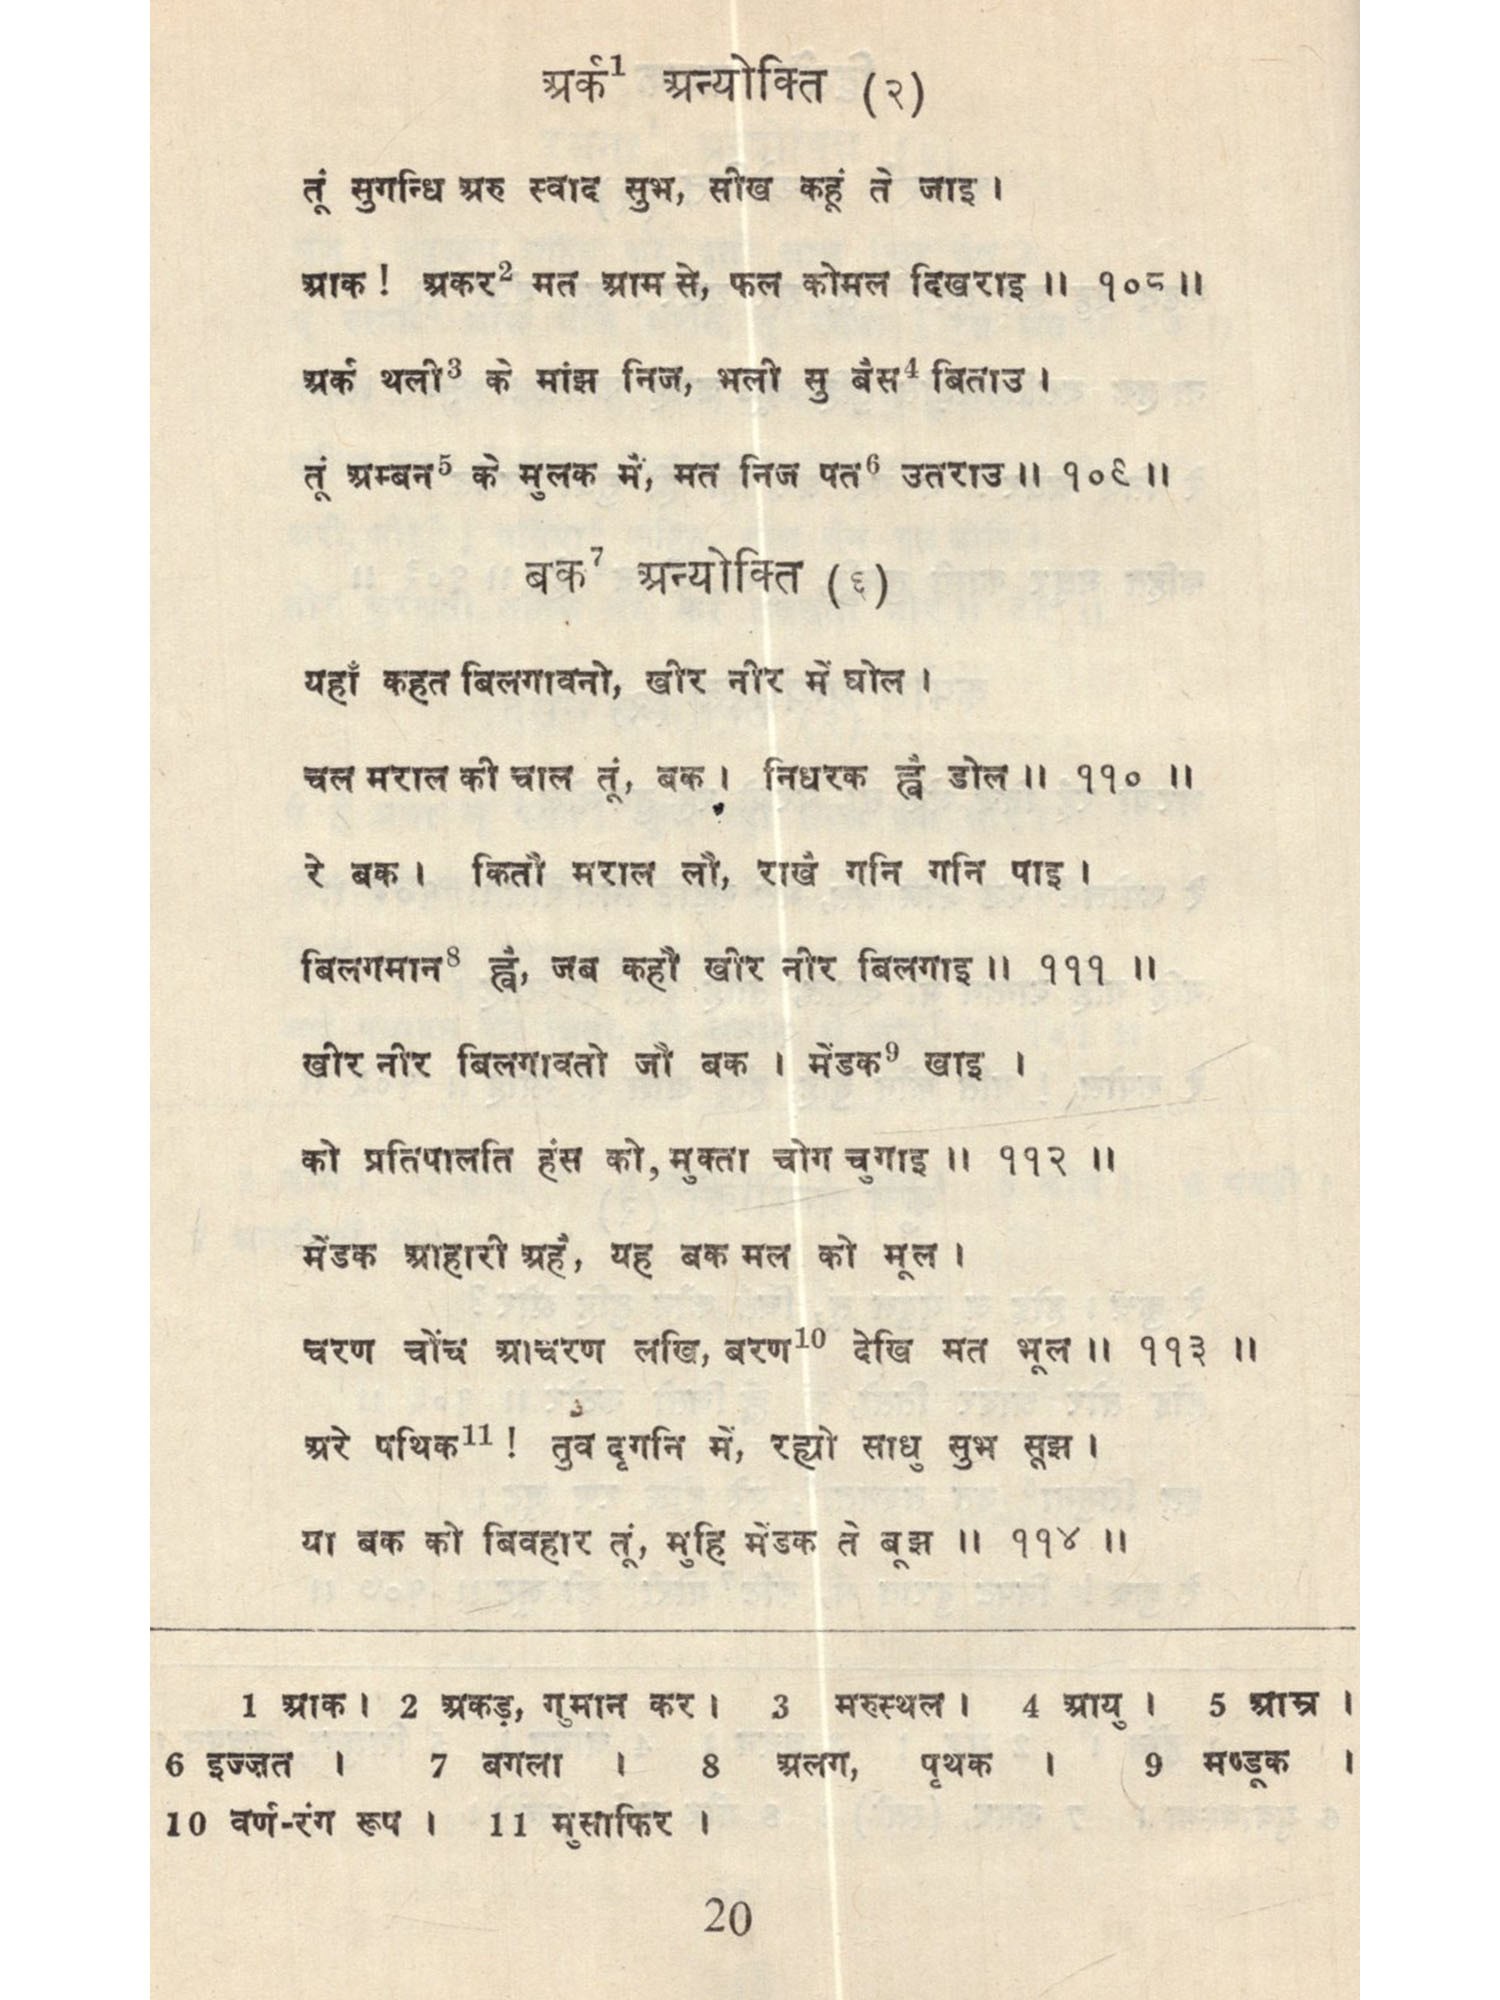 अर्क1 अन्योक्ति (२)
तूं सुगन्धि अरु स्वाद सुभ, सीख कहूं ते जाइ।
आक! अकर2 मत आम से, फल कोमल दिखराइ॥ १०८॥
अर्क थली3 के मांझ निज, भली सु बैस4 बिताउ।
तूं अम्बन5 के मुलक मैं, मत निज पत6 उतराउ॥ १०९॥
बक7 अन्योक्ति (६)
यहाँ कहत बिलगावनो, खीर नीर में घोल।
चल मराल की चाल तूं, बक। निधरक ह्वै डोल॥ ११०॥
रे बक। कितौ मराल लौ, राखै गनि गनि पाइ।
बिलगमान8 ह्वै, जब कहौ खीर नीर बिलगाइ॥ १११॥
खीर नीर बिलगावतो जौ बक। मेंडक9 खाइ।
को प्रतिपालति हंस को, मुक्ता चोग चुगाइ॥ ११२॥
मेंडक आहारी अहै, यह बक मल को मूल।
चरण चोंच आचरण लखि, बरण10 देखि मत भूल॥ ११३॥
अरे पथिक11! तुव दृगनि में, रह्यो साधु सुभ सूझ।
या बक को बिवहार तूं, मुहि मेंडक ते बूझ॥ ११४॥
1 आक। 2 अकड़, गुमान कर। 3 मरुस्थल। 4 आयु। 5 आम्र।
6 इज्ज़त। 7 बगला। 8 अलग, पृथक। 9 मण्डूक।
10 वर्ण-रंग रूप। 11 मुसाफिर।
20